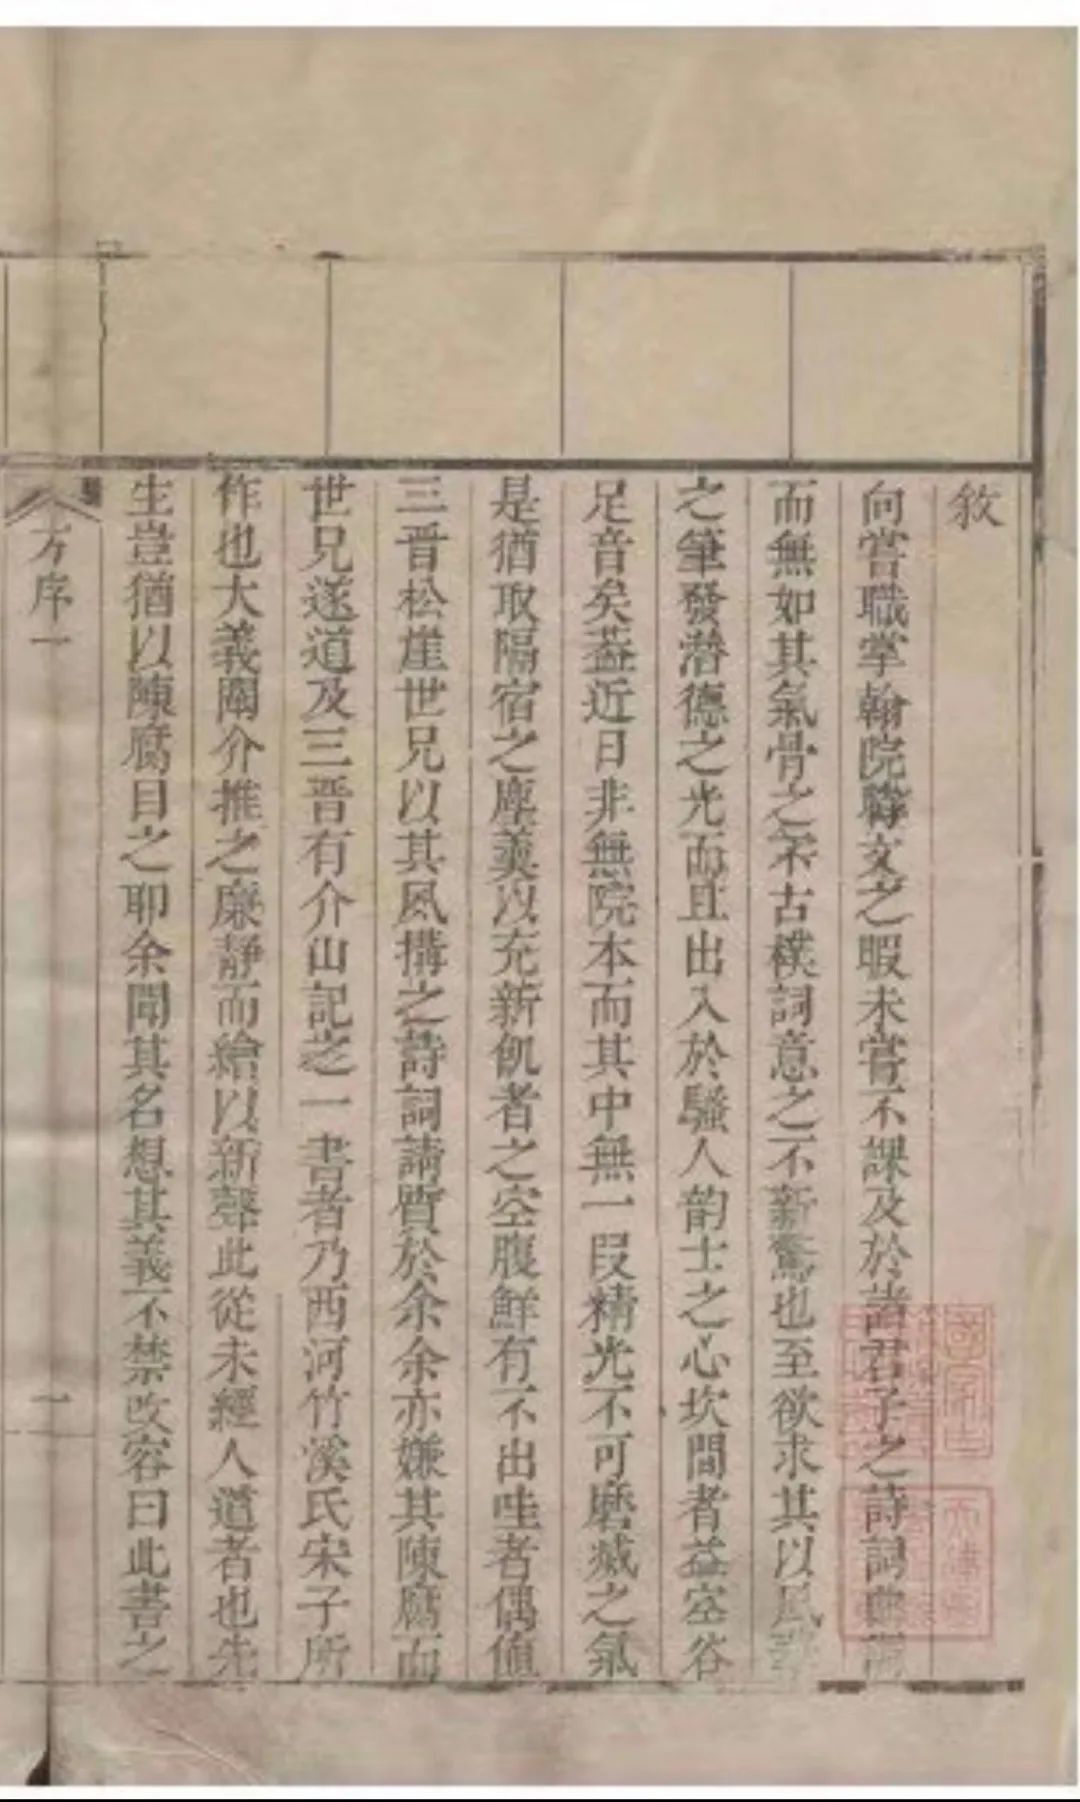 敘
向嘗職掌翰院聯文之暇未嘗不課及於諸君子之詩詞
而無如其氣骨之不古樸詞意之不新驚也至欲求其以風
之筆發潛德之光而且出入於騷人韵士之心坎間者益空谷
足音矣葢近日非無院本而其中無一段精光不可磨滅之氣
是猶取隔宿之塵羮以充新飢者之空腹鮮有不出哇者偶值
三晋松崖世兄以其風搆之詩詞請質於余余亦嫌其陳腐而
世兄遂道及三晋有介山記之一書者乃西河竹溪氏宋子所
作也大義闡介推之廉靜而繪以新聲此從未經人道者也先
生豈猶以陳腐目之耶余聞其名想其義不禁改容曰此書之
方序一
一